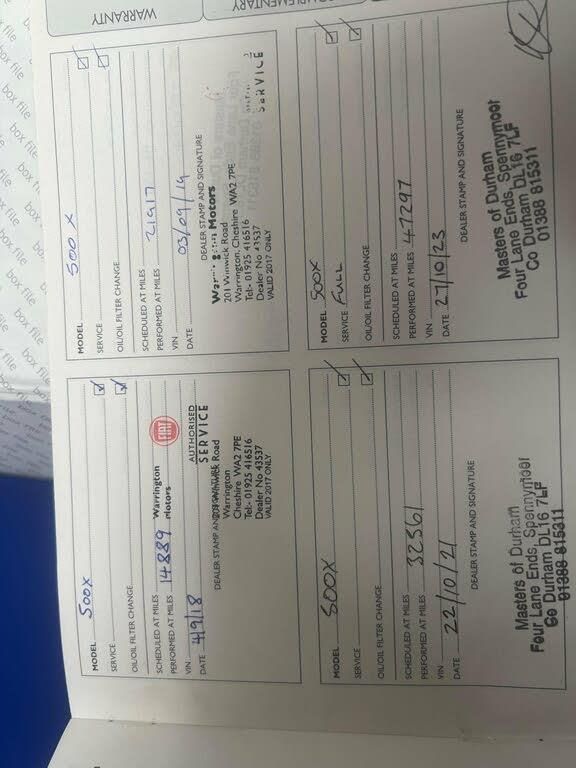 MODEL 500X
SERVICE
OIL/OIL FILTER CHANGE
SCHEDULED AT MILES
PERFORMED AT MILES 14889
Warrington
Motors
FIAT
VIN
DATE 4/9/18
AUTHORISED
SERVICE
DEALER STAMP AND SIGNATURE
Winwick Road
Warrington
Cheshire WA2 7PE
Tel:- 01925 416516
Dealer No 43537
VALID 2017 ONLY
MODEL 500 X
SERVICE
OIL/OIL FILTER CHANGE
SCHEDULED AT MILES
PERFORMED AT MILES 21917
VIN
DATE 03/09/19
DEALER STAMP AND SIGNATURE
Motors
201 Winwick Road
Warrington, Cheshire WA2 7PE
Tel:- 01925 416516
Dealer No 43537
VALID 2017 ONLY
SERVICE
MODEL 500X
SERVICE
OIL/OIL FILTER CHANGE
SCHEDULED AT MILES
PERFORMED AT MILES 32561
VIN
DATE 22/10/21
DEALER STAMP AND SIGNATURE
Masters of Durham
Four Lane Ends, Spennymoor
Co Durham DL16 7LF
01388 815311
MODEL 500X
SERVICE FULL
OIL/OIL FILTER CHANGE
SCHEDULED AT MILES
PERFORMED AT MILES 47297
VIN
DATE 27/10/23
DEALER STAMP AND SIGNATURE
Masters of Durham
Four Lane Ends, Spennymoor
Co Durham DL16 7LF
01388 815311
WARRANTY
box file
box file
box file
box file
box file
box file
box file